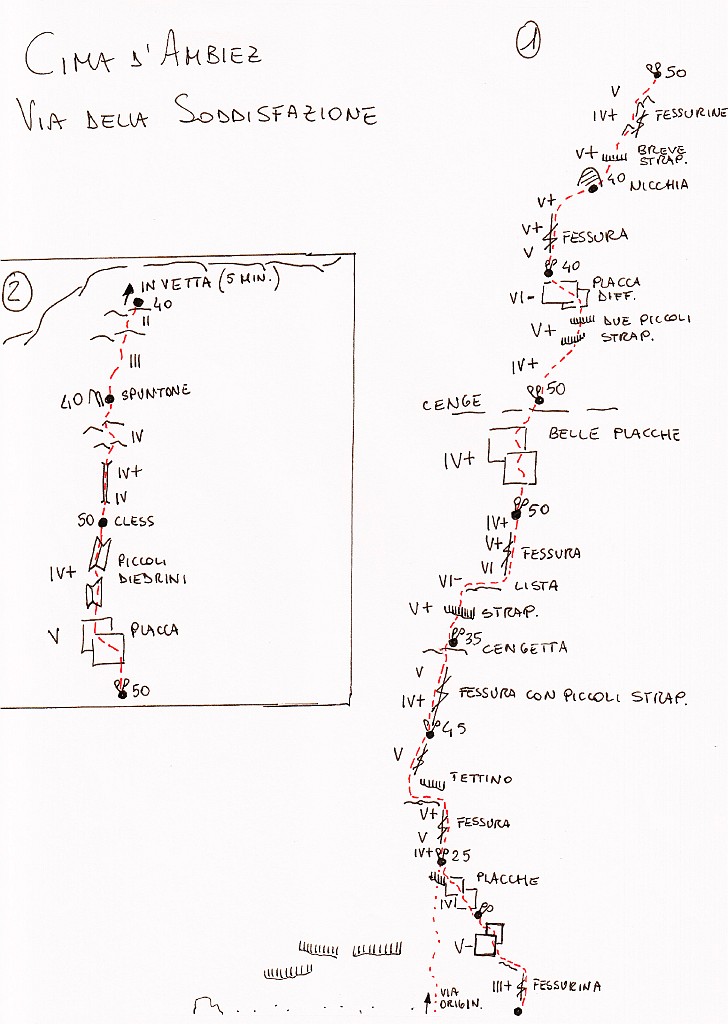 CIMA D'AMBIEZ
VIA DELLA SODDISFAZIONE
1
50
V
IV+
FESSURINE
V+
BREVE
STRAP.
40
NICCHIA
V+
V+
FESSURA
V
40
PLACCA
DIFF.
VI-
DUE PICCOLI
STRAP.
V+
IV+
50
CENGE
BELLE PLACCHE
IV+
50
IV+
V+
FESSURA
VI
VI-
LISTA
V+
STRAP.
35
CENGETTA
V
IV+
FESSURA CON PICCOLI STRAP.
45
V
TETTINO
V+
FESSURA
V
IV+
25
PLACCHE
IV
V-
III+
FESSURINA
VIA
ORIGIN.
2
IN VETTA (5 MIN.)
40
II
III
40
SPUNTONE
IV
IV+
IV
50
CLESS
IV+
PICCOLI
DIEDRINI
V
PLACCA
50